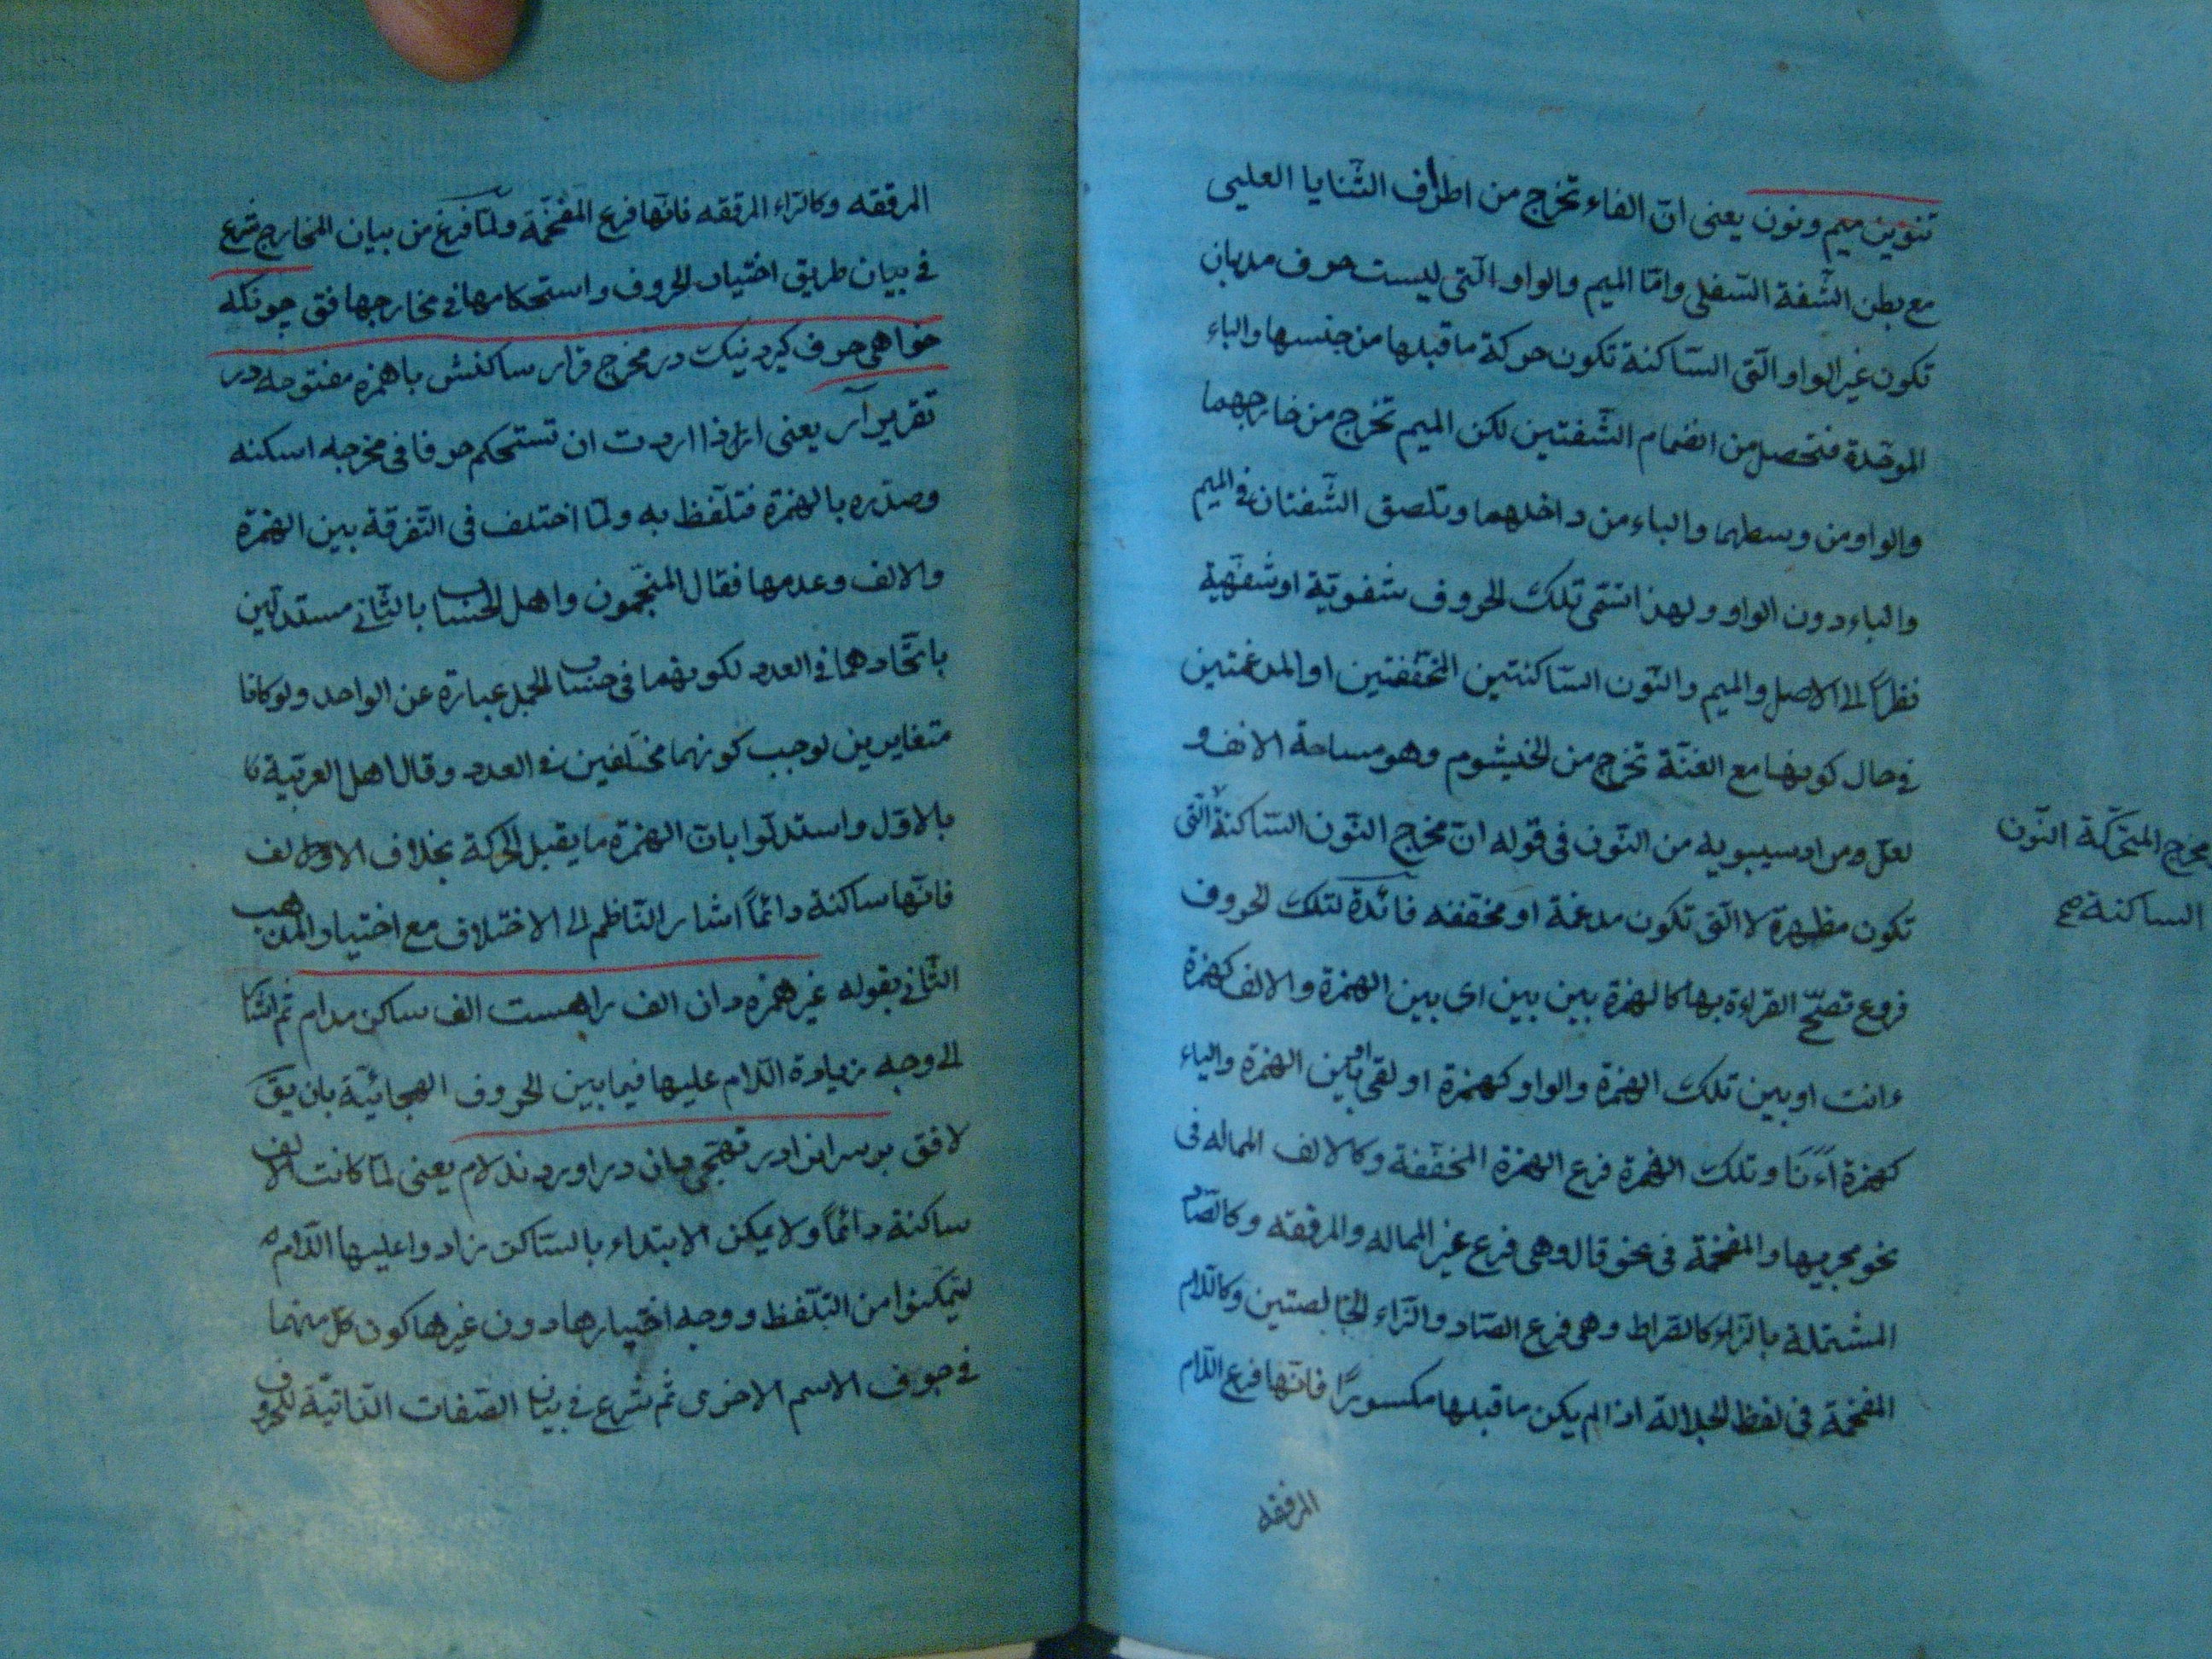 تنوین میم ونون یعنی انّ الفاء تخرج من اطراف الثّنایا العلیی
مع بطن الشّفة السّفلی وامّا المیم والواو الّتی لیست حرف مد بان
تکون غیر الواو الّتی السّاکنة تکون حرکة ماقبلها من جنسها والباء
الموحّدة فتحصل من انضمام الشّفتین لکن المیم تخرج من خارجهما
والواو من وسطهما والباء من داخلهما وتلصق الشّفتان فی المیم
والباء دون الواو ولهذا تسمّی تلک الحروف شفویّة او شفهیّة
نظرًا الی الاصل والمیم والنّون السّاکنتین المخفّفتین او المدغمتین
فی حال کونهما مع الغنّة تخرج من الخیشوم وهو مساحة الانف و
لعلّ مراد سیبویه من النّون فی قوله انّ مخرج النّون السّاکنة الّتی
مخرج المتحرّکة النّون
الساکنة صح
تکون مظهرة لا الّتی تکون مدغمة او مخففه فائدة لتلک الحروف
فروع تصحّ القراءة بها کالهمزة بین بین ای بین الهمزة والالف کهمزة
ءانت او بین تلک الهمزة والواو کهمزة اولقی او بین الهمزة والیاء
کهمزة أءنّا وتلک الهمزة فرع الهمزة المخفّفة وکالالف المماله فی
نحو مجریها والمفخّمة فی نحو قال وهی فرع غیر المماله والمرققه وکالصّاد
المشتملة بالزّاء کالقراط وهی فرع الصّاد والزّاء الخالصتین وکاللام
المفخّمة فی لفظ الجلالة اذا لم یکن ماقبلها مکسورًا فانّها فرع اللام
المرققه
المرققه وکالرّاء المرققه فانّها فرع المفخّمة ولمّا فرغ من بیان المخارج شرع
فی بیان طریق اختیار الحروف واستحکامها فی مخارجها فق چونکه
خواهی حرف کیرد نیک در مخرج قرار ساکنش با همزه مفتوحه در
تقریر آر یعنی اذا اردت ان تستحکم حرفا فی مخرجه اسکنه
وصدّره بالهمزة فتلّفظ به ولمّا اختلف فی التّفرقة بین الهمزة
والالف وعدمها فقال المنجّمون واهل الحساب بالثّانی مستدلّین
باتّحادهما فی العدد لکونهما فی حساب الجمل عبارة عن الواحد ولو کانا
متغایرین لوجب کونهما مختلفین فی العدد وقال اهل العربیّة
بالاوّل واستدلّوا بانّ الهمزة ما یقبل الحرکة بخلاف الالف
فانّها ساکنة دائمًا اشار النّاظم الی الاختلاف مع اختیار المذهب
الثّانی بقوله غیر همزه دان الف را هست الف ساکن مدام ثم اشار
الی وجه زیادة اللام علیها فیما بین الحروف الهجائیّة بان یق
لا فق بر سر ان در تهجّی دان دراوردند لام یعنی لمّا کانت الالف
ساکنة دائمًا ولا یمکن الابتداء بالسّاکن زادوا علیها اللام
لیتمکّنوا من التّلفّظ ووجه اختیارها دون غیرها کون کل منهما
فی جوف الاسم الاخری ثم شرع فی بیان الصّفات الذّاتیّة للحروف